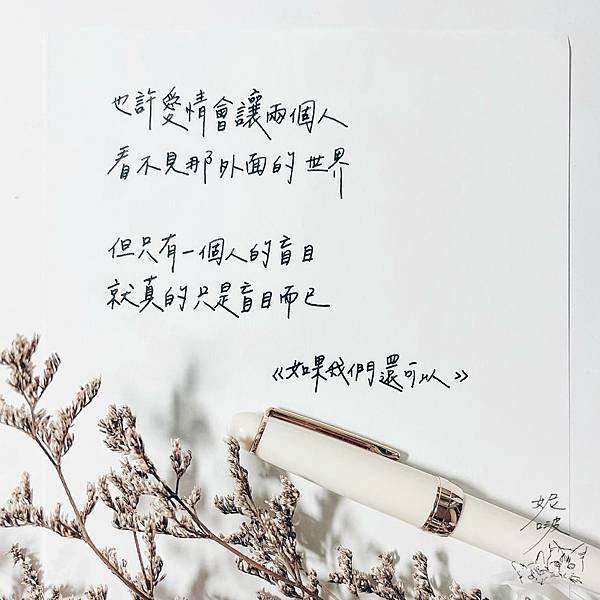 也許愛情會讓兩個人
看不見那外面的世界
但只有一個人的盲目
就真的只是盲目而已
《如果我們還可以》
妮啵